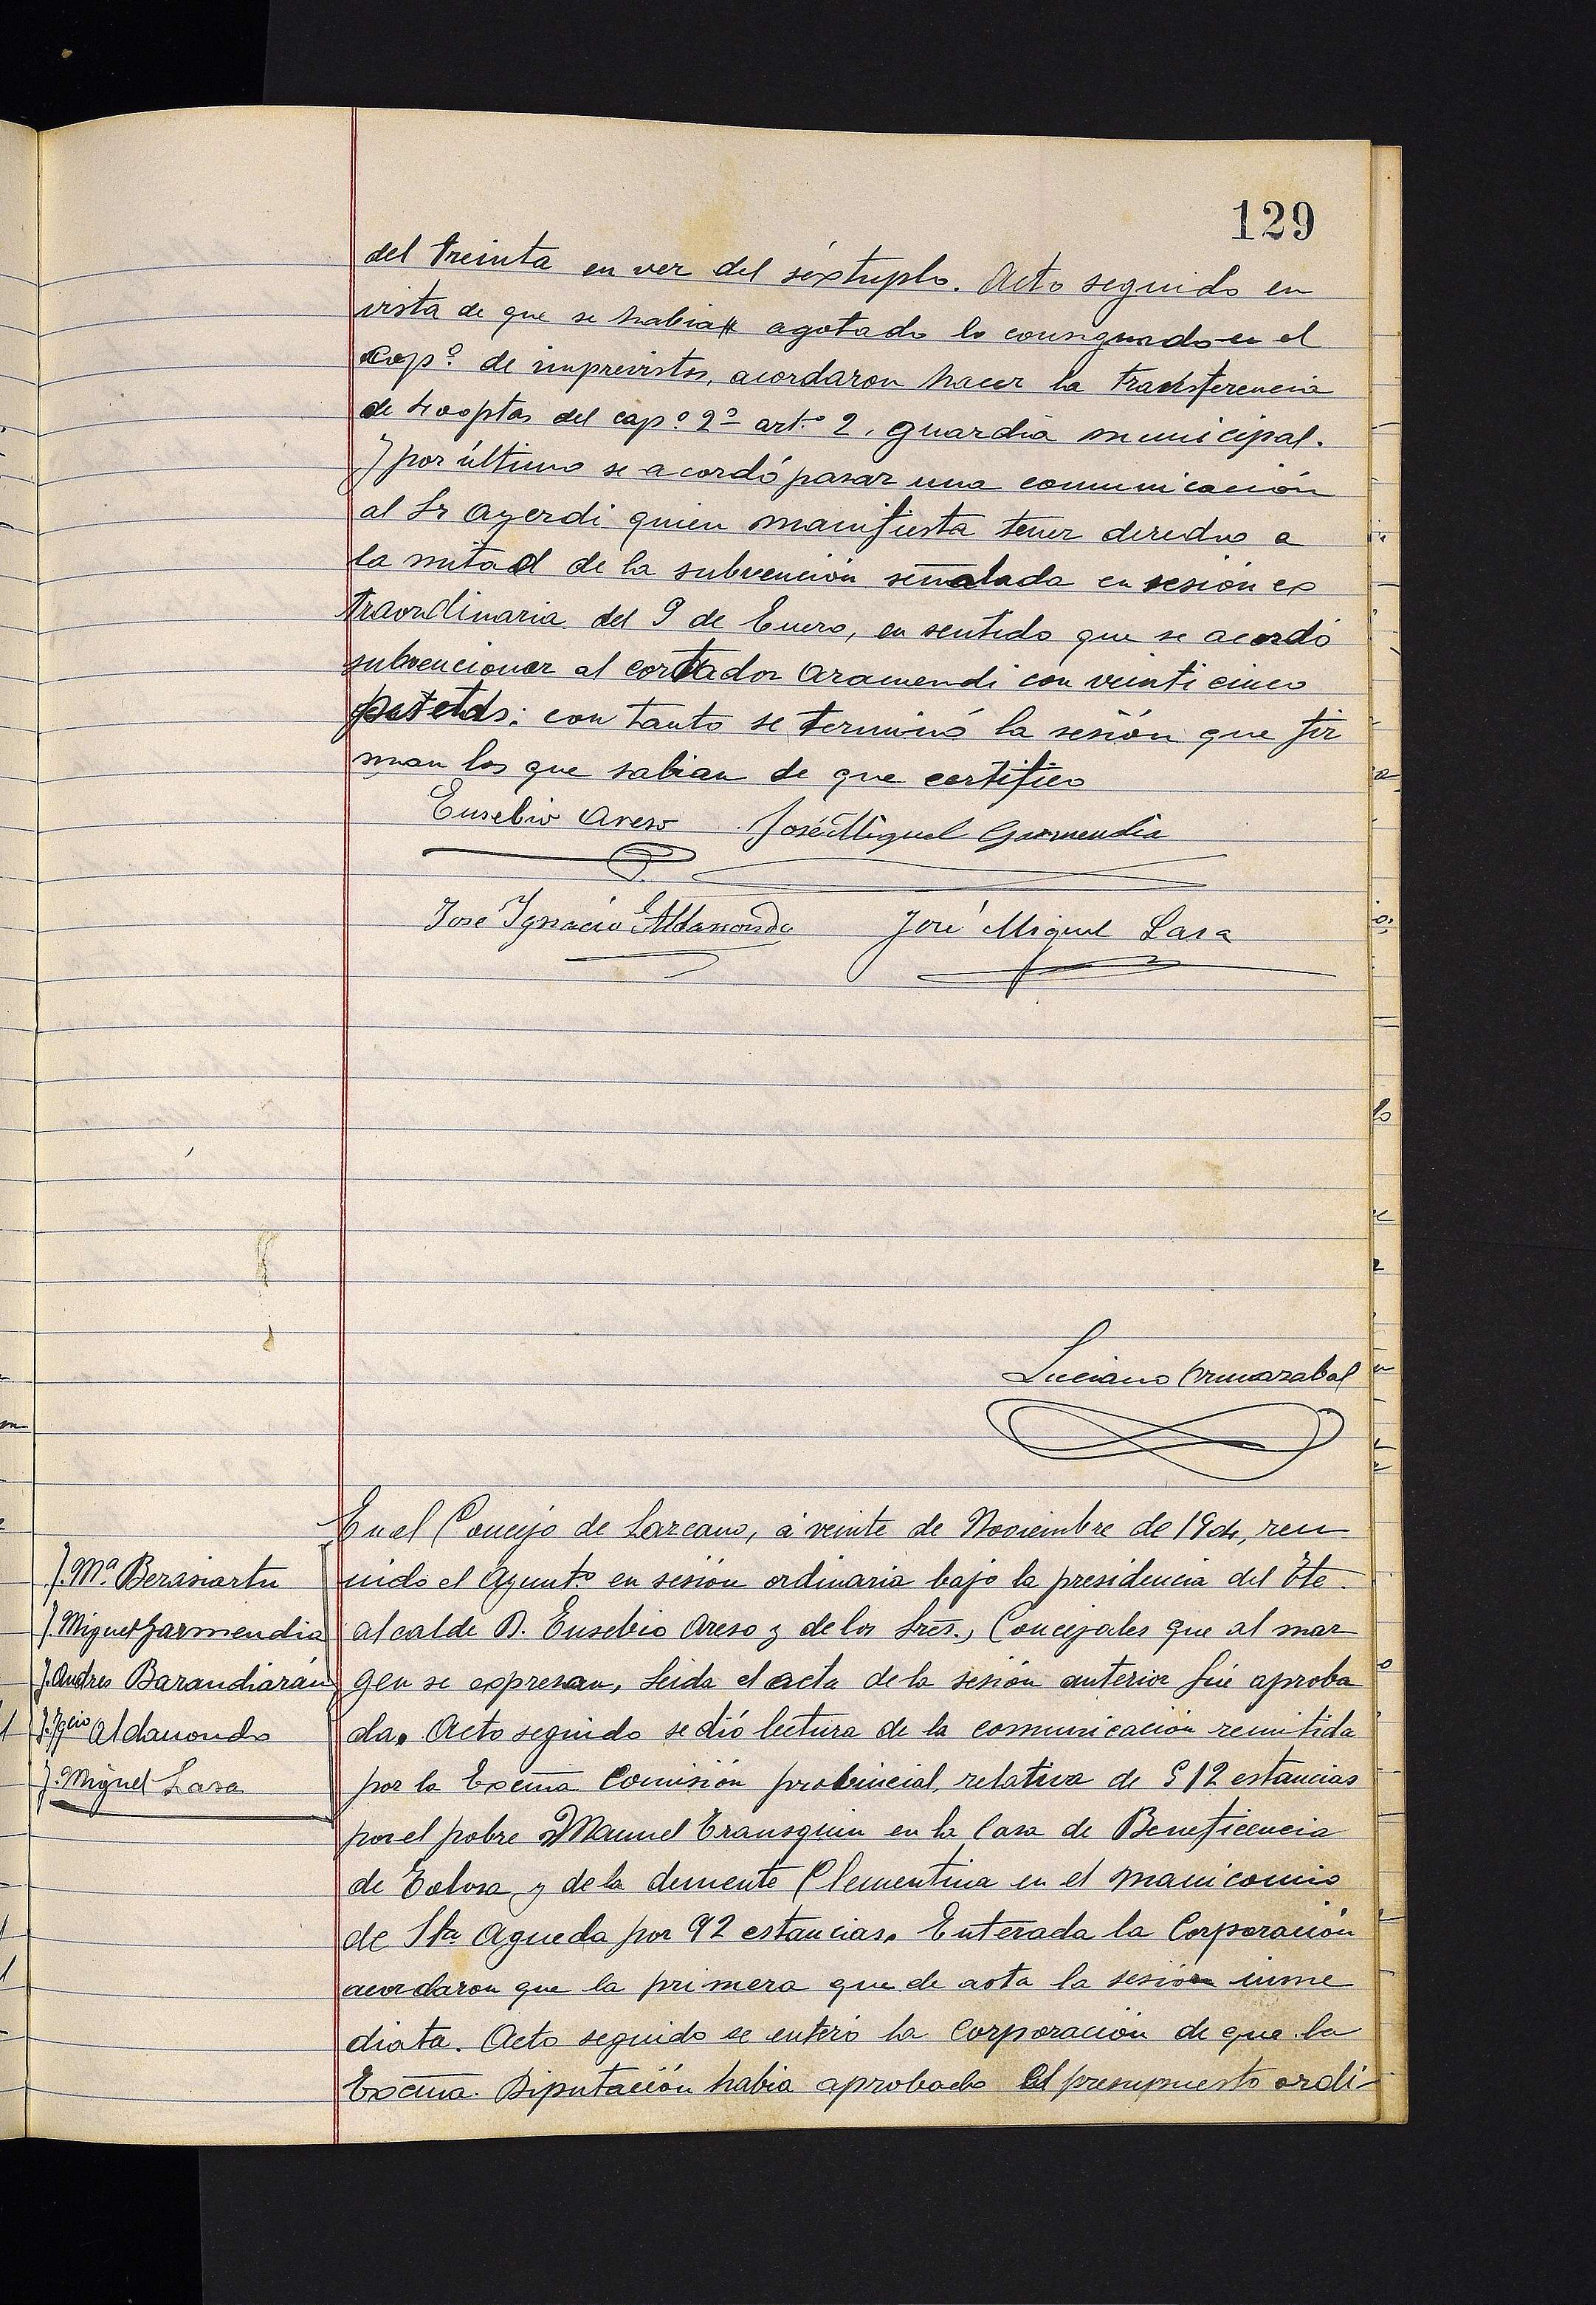 129
del treinta en vez del séxtuplo. Acto seguido en
vista de que se habia agotado lo consignado en el
cap.º de imprevistos, acordaron hacer la transferencia
de 400 ptas del cap.º 2º art.º 2, guardia municipal.
Y por último se acordó pasar una comunicación
al Sr Ayerdi quien manifiesta tener derecho a
la mitad de la subvención señalada en sesión ex
traordinaria del 9 de Enero, en sentido que se acordó
subvencionar al cortador Aramendi con veinticinco
pesetas: con tanto se terminó la sesión que fir
man los que sabian de que certifico
Eusebio Areso José Miguel Garmendia
José Ignacio Aldanondo José Miguel Lasa
Luciano Ormazabal
En el Concejo de Lazcano, á veinte de Noviembre de 1904, reu
nido el Ayunt.º en sesión ordinaria bajo la presidencia del Tte.
alcalde D. Eusebio Areso y de los Sres., Concejales que al mar
gen se expresan, leida el acta de la sesión anterior fué aproba
da. Acto seguido se dió lectura de la comunicación remitida
por la Excma Comisión probincial, relativa de 512 estancias
por el pobre Manuel Eransquin en la Casa de Beneficencia
de Tolosa y de la demente Clementina en el manicomio
de Sta Agueda por 92 estancias. Enterada la Corporación
acordaron que la primera que de acta la sesión inme
diata. Acto seguido se enteró la Corporación de que la
Excma. Diputación habia aprobado el presupuesto ordi-
J. Mª. Berasiartu
J. Miguel Garmendia
J. Andres Barandiarán
J. Ygcio Aldanondo
J. Miguel Lasa